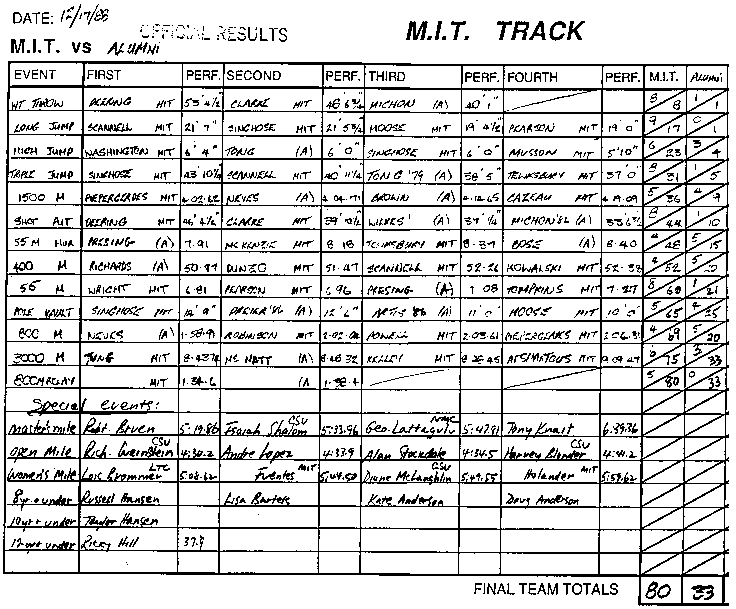 DATE: 12/17/88
OFFICIAL RESULTS
M.I.T. TRACK
M.I.T. vs ALUMNI
EVENT FIRST PERF. SECOND PERF. THIRD PERF. FOURTH PERF. M.I.T. ALUMNI
WT THROW DEERING MIT 53' 4½ CLARKE MIT MICHON (A) 40' 1" 8 8 1 1
LONG JUMP SCANNELL MIT 21' 7" SINGHOSE MIT 21' 5¾ MOOSE MIT 19' 4½ PEARSON MIT 19' 0" 9 17 0 1
HIGH JUMP WASHINGTON MIT 6' 4" TONG (A) 6' 0" SINGHOSE MIT 6' 0" MUSSON MIT 5'10" 6 23 3 4
TRIPLE JUMP SINGHOSE MIT 43' 10¼ SCANNELL MIT 40' 11¼ TONG '79 (A) 38' 5" TEWKSBURY MIT 37' 0" 8 31 1 5
1500 M MIT 4:02.62 NEVES (A) 4:04.71 BROWN (A) 4:12.65 CAZEAU MIT 4:19.09 5 36 4 9
SHOT PUT DEERING MIT CLARKE MIT WILKES (A) 37' ¼" MICHON (A) 8 44 1 10
55 M HUR PRESING (A) 7.91 McKENZIE MIT 8.18 TEWKSBURY MIT 8.37 BOSE (A) 8.40 4 48 5 15
400 M RICHARDS (A) 50.97 MIT 51.47 SCANNELL MIT 52.26 KOWALSKI MIT 52.38 4 52 5 20
55 M WRIGHT MIT 6.81 PEARSON MIT 6.96 PRESING (A) 7.08 TOMPKINS MIT 7.27 8 60 1 21
POLE VAULT SINGHOSE MIT 12' 9" (A) 12' 6" '88 (A) 11' 0" MOOSE MIT 10' 0" 5 65 4 25
800 M NEVES (A) 1:58.91 ROBINSON MIT POWELL MIT 2:03.61 MIT 2:06.31 4 69 5
3000 M TUNG MIT McNATT (A) KELLEY MIT MIT 9:09.47 6 75 3 33
800M RELAY MIT 1:34.6 (A 1:38.4 5 80 0 33
Special events:
master's mile Robt. Bruen 5:19.86 Isaiah Shalom CSU 5:33.96 Geo. 5:47.91 Tony 6:39.36
open Mile Rich. Weinstein CSU 4:30.2 Andre Lopez 4:33.9 Alan Stocdale 4:34.5 Harvey CSU 4:41.2
Women's Mile Lois Brommer LTC 5:08.62 Fuentes MIT 5:44.50 Diane McLaughlin CSU 5:49.55 Holander MIT 5:59.62
8yr + under Russell Hansen Lisa Barters Kate Anderson Doug Anderson
10yr + under Taylor Hansen
12 + under Ricky Hill 37.9
FINAL TEAM TOTALS 80 33